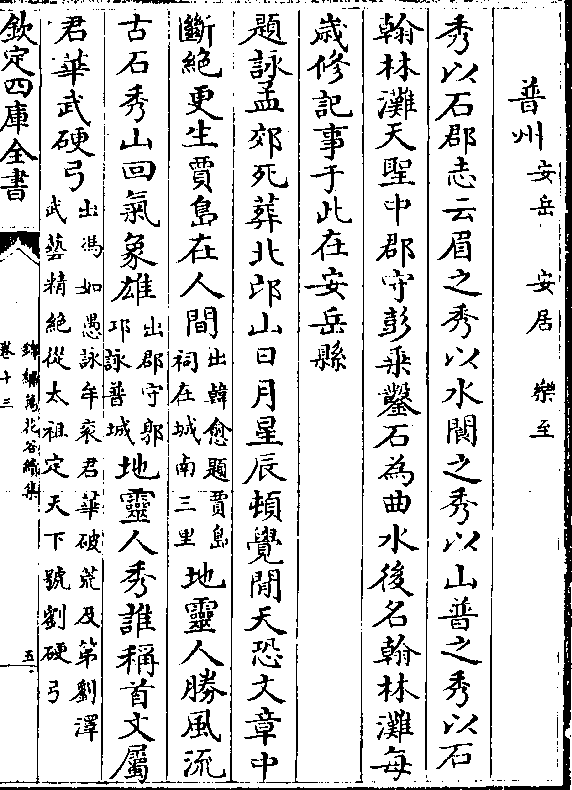 普州 安岳 安居 樂至
秀以石郡志云眉之秀以水閬之秀以山普之秀以石
翰林灘天聖中郡守彭乘鑿石為曲水後名翰林灘每
歲修記事于此在安岳縣
題詠孟郊死葬北邙山日月星辰頓覺閒天恐文章中
斷絶更生賈島在人間出韓愈題賈島祠在城南三里地靈人勝風流
古石秀山回氣象雄出郡守郭邛詠普城地靈人秀誰稱首文屬
君華武硬弓出馮如愚詠牟衮君華破荒及第劉澤武藝精絶從太祖定天下號劉硬弓
欽定四庫全書
錦繡萬花谷續集
卷十三
五